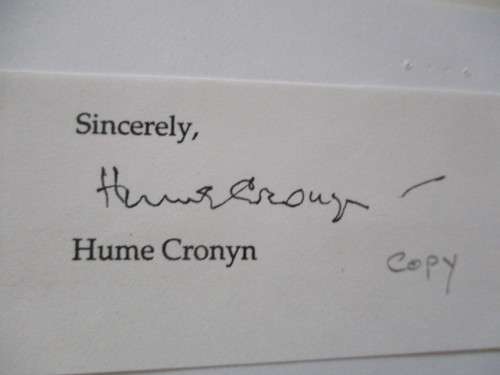 Sincerely,
Hume Cronyn
Hume Cronyn
copy